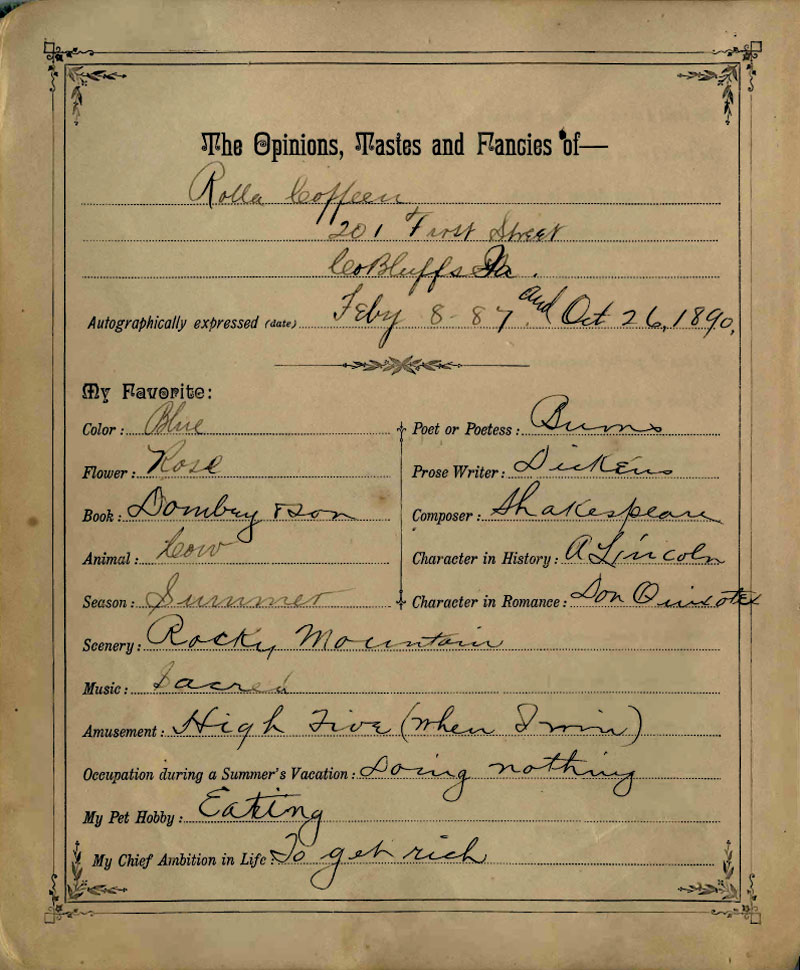 The Opinions, Tastes and Fancies of—
Rolla Coffeen
201 Frost Street
Co Bluffs Ia.
Autographically expressed (date) Feby 8-87 and Oct 26, 1890,
My Favorite:
Color: Blue
Flower: Rose
Book: Dombey & Son
Animal: Cow
Season: Summer
Poet or Poetess: Burns
Prose Writer: Dickens
Composer: Shakespeare
Character in History: A Lincoln
Character in Romance: Don Quixote
Scenery: Rocky Mountain
Music: Sacred
Amusement: High Five (when I win)
Occupation during a Summer's Vacation: Doing nothing
My Pet Hobby: Eating
My Chief Ambition in Life: To get rich